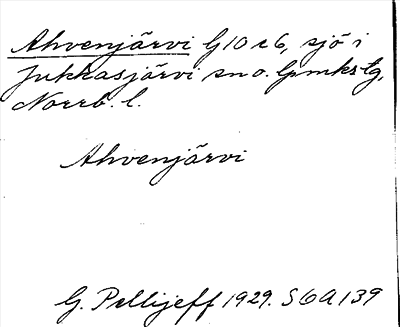 Ahvenjärvi G 10 c 6, sjö i
Jukkasjärvi sn o. lpmks tg,
Norrb. l.
Ahvenjärvi
G. Pellijeff 1929. S 6 A 139